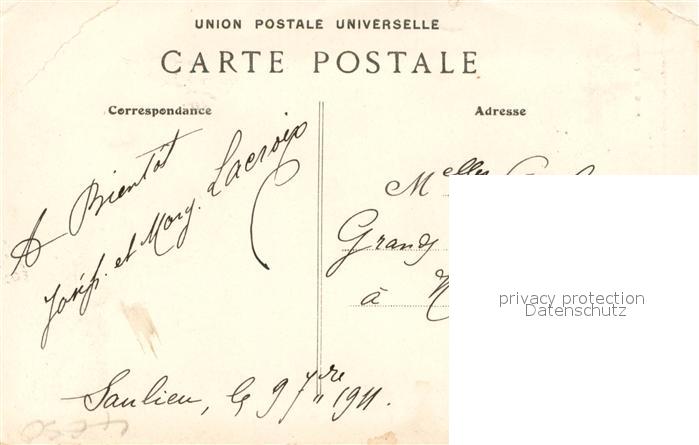 UNION POSTALE UNIVERSELLE
CARTE POSTALE
Correspondance
A Bientôt
Josép. et Marg. Lacroix
Saulieu, le 9 7bre 1911.
Adresse
Melles
Grands
à
privacy protection
Datenschutz